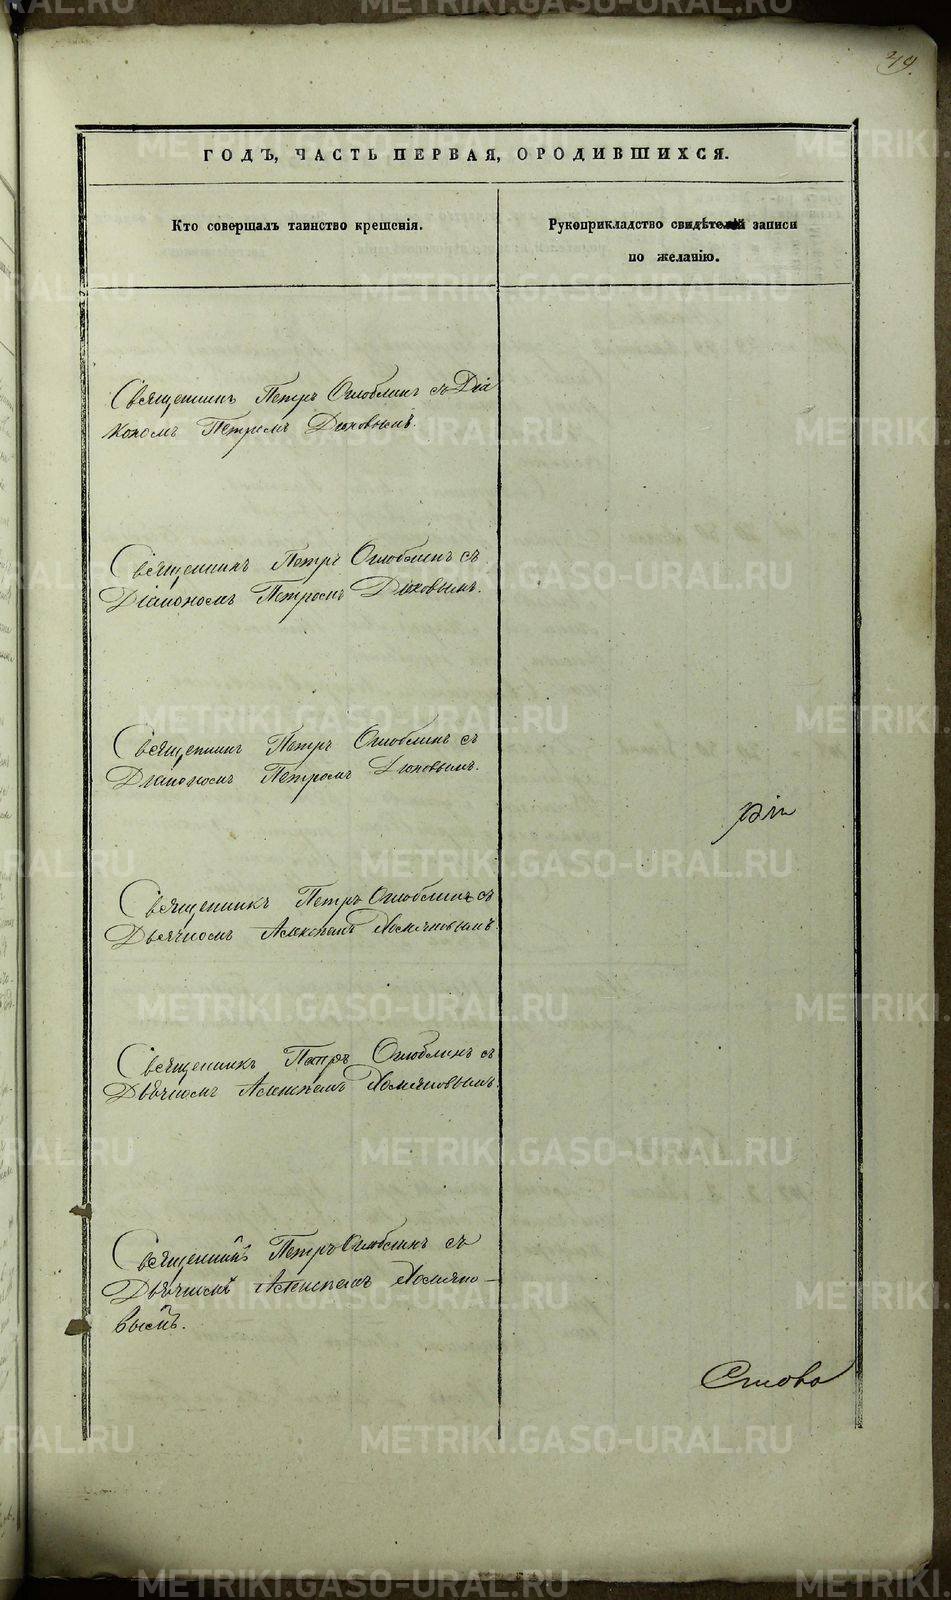 49.
ГОДЪ, ЧАСТЬ ПЕРВАЯ, О РОДИВШИХСЯ.
Кто совершалъ таинство крещенія.
Рукоприкладство свидѣтелей записи
по желанію.
Священникъ Петръ Оглоблинъ съ Діа
кономъ Петромъ Дюковымъ.
Священникъ Петръ Оглоблинъ съ
Діакономъ Петромъ Дюковымъ.
Священникъ Петръ Оглоблинъ съ
Діакономъ Петромъ Дюковымъ.
рій
Священникъ Петръ Оглоблинъ съ
Дьячкомъ Алексѣемъ Хомяковымъ.
Священникъ Петръ Оглоблинъ съ
Дьячкомъ Алексѣемъ Хомяковымъ.
Священникъ Петръ Оглоблинъ съ
Дьячкомъ Алексѣемъ Хомяко-
вымъ.
METRIKI.GASO-URAL.RU